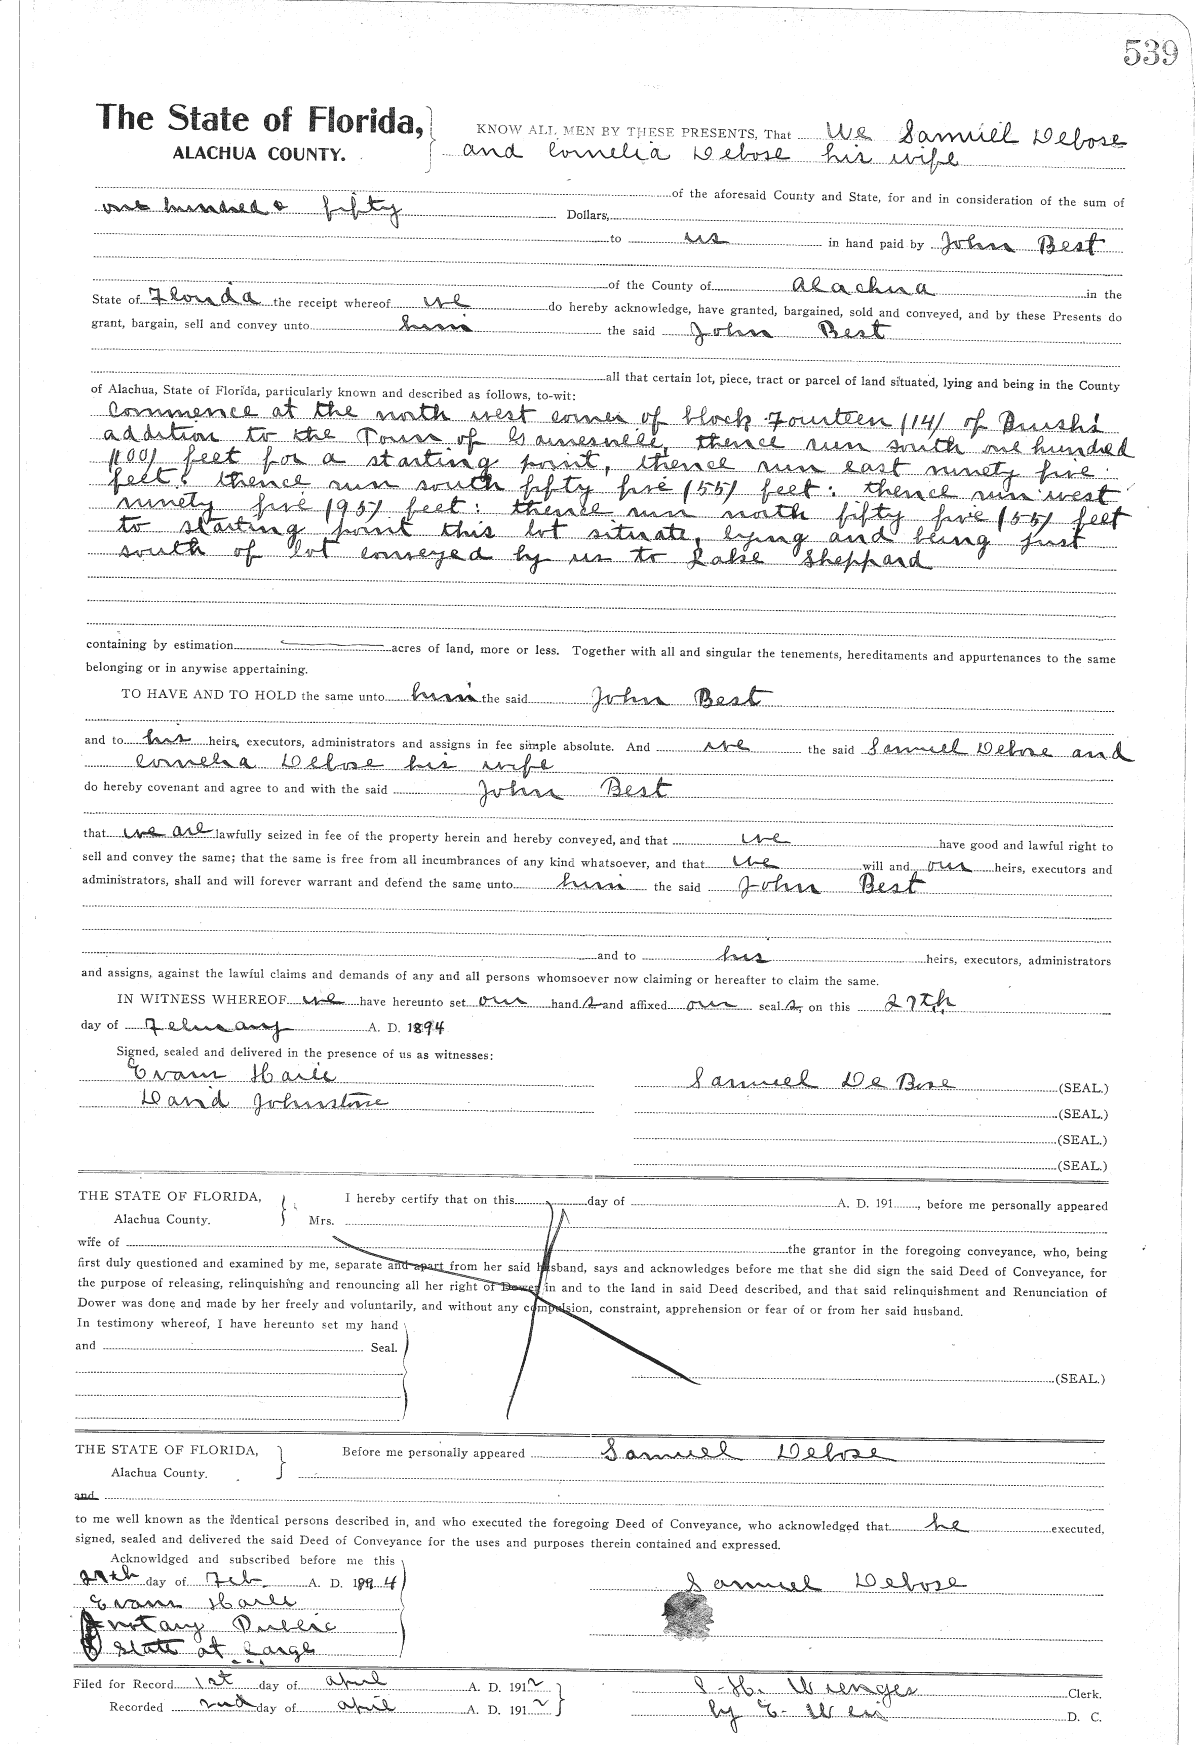 539
The State of Florida,
ALACHUA COUNTY.
KNOW ALL MEN BY THESE PRESENTS, That We Samuel Debose
and Cornelia Debose his wife
of the aforesaid County and State, for and in consideration of the sum of
one hundred & fifty Dollars,
to us in hand paid by John Best
of the County of Alachua in the
State of Florida the receipt whereof we do hereby acknowledge, have granted, bargained, sold and conveyed, and by these Presents do
grant, bargain, sell and convey unto him the said John Best
all that certain lot, piece, tract or parcel of land situated, lying and being in the County
of Alachua, State of Florida, particularly known and described as follows, to-wit:
Commence at the north west corner of block Fourteen (14) of Brush's
addition to the Town of Gainesville, thence run south one hundred
(100) feet for a starting point, thence run east ninety five
feet: thence run south fifty five (55) feet: thence run west
ninety five (95) feet: thence run north fifty five (55) feet
to starting point this lot situate, lying and being just
south of lot conveyed by us to Sheppard
containing by estimation acres of land, more or less. Together with all and singular the tenements, hereditaments and appurtenances to the same
belonging or in anywise appertaining.
TO HAVE AND TO HOLD the same unto him the said John Best
and to his heirs, executors, administrators and assigns in fee simple absolute. And we the said Samuel Debose and
Cornelia Debose his wife
do hereby covenant and agree to and with the said John Best
that we are lawfully seized in fee of the property herein and hereby conveyed, and that we have good and lawful right to
sell and convey the same; that the same is free from all incumbrances of any kind whatsoever, and that we will and our heirs, executors and
administrators, shall and will forever warrant and defend the same unto him the said John Best
and to his heirs, executors, administrators
and assigns, against the lawful claims and demands of any and all persons whomsoever now claiming or hereafter to claim the same.
IN WITNESS WHEREOF we have hereunto set our hand s and affixed our seal s on this 27th
day of February A. D. 1894
Signed, sealed and delivered in the presence of us as witnesses:
Evans Haile
Samuel De Bose (SEAL.)
David Johnstone
(SEAL.)
(SEAL.)
(SEAL.)
THE STATE OF FLORIDA,
Alachua County.
I hereby certify that on this day of A. D. 191 , before me personally appeared
Mrs.
wife of the grantor in the foregoing conveyance, who, being
first duly questioned and examined by me, separate and apart from her said husband, says and acknowledges before me that she did sign the said Deed of Conveyance, for
the purpose of releasing, relinquishing and renouncing all her right of Dower in and to the land in said Deed described, and that said relinquishment and Renunciation of
Dower was done and made by her freely and voluntarily, and without any compulsion, constraint, apprehension or fear of or from her said husband.
In testimony whereof, I have hereunto set my hand
and Seal.
(SEAL.)
THE STATE OF FLORIDA,
Alachua County.
Before me personally appeared Samuel Debose
and
to me well known as the identical persons described in, and who executed the foregoing Deed of Conveyance, who acknowledged that he executed,
signed, sealed and delivered the said Deed of Conveyance for the uses and purposes therein contained and expressed.
Acknowldged and subscribed before me this
27th day of Feb A. D. 1894
Samuel Debose
Evans Haile
Notary Public
State at Large
Filed for Record 1st day of April A. D. 1912
S. H. Wienges Clerk.
Recorded 2nd day of April A. D. 1912
by E. D. C.